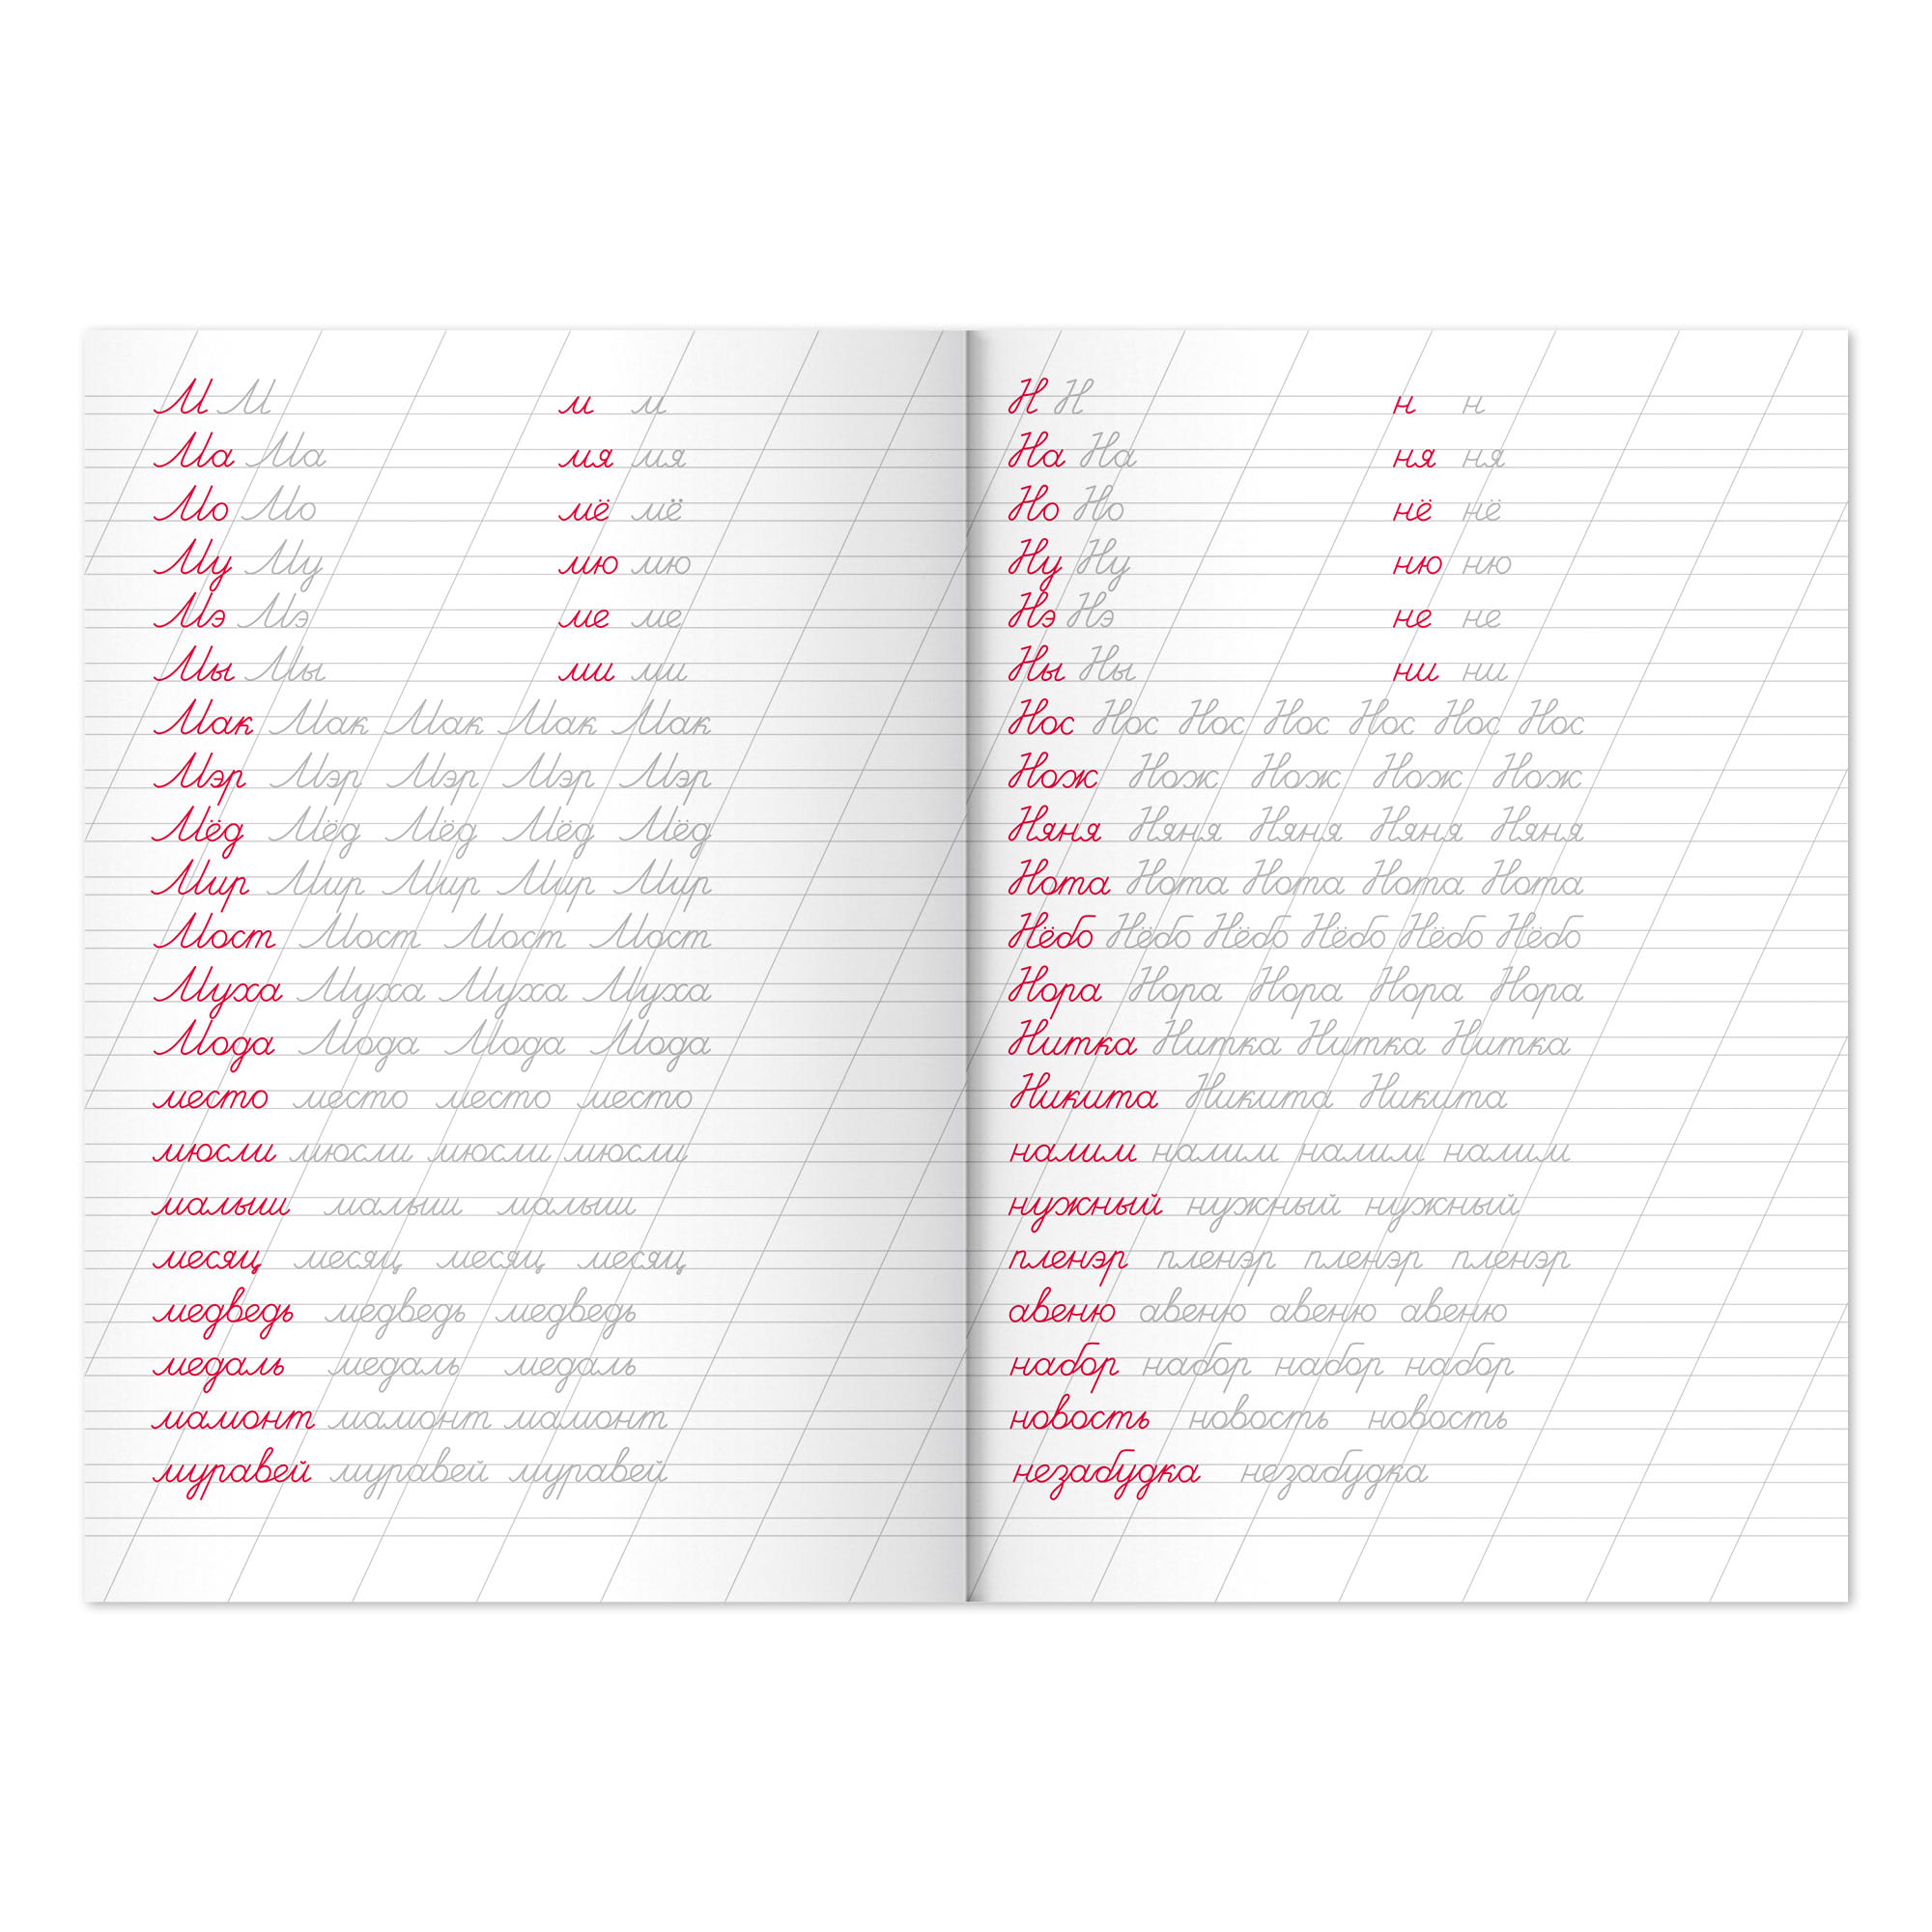 М М м м
Ма Ма мя мя
Мо Мо мё мё
Му Му мю мю
Мэ Мэ ме ме
Мы Мы ми ми
Мак Мак Мак Мак Мак
Мэр Мэр Мэр Мэр Мэр
Мёд Мёд Мёд Мёд Мёд
Мир Мир Мир Мир Мир
Мост Мост Мост Мост
Муха Муха Муха Муха
Мода Мода Мода Мода
место место место место
мюсли мюсли мюсли мюсли
малыш малыш малыш
месяц месяц месяц месяц
медведь медведь медведь
медаль медаль медаль
мамонт мамонт мамонт
муравей муравей муравей
Н Н н н
На На ня ня
Но Но нё нё
Ну Ну ню ню
Нэ Нэ не не
Ны Ны ни ни
Нос Нос Нос Нос Нос Нос Нос
Нож Нож Нож Нож Нож
Няня Няня Няня Няня Няня
Нота Нота Нота Нота Нота
Нёбо Нёбо Нёбо Нёбо Нёбо Нёбо
Нора Нора Нора Нора Нора
Нитка Нитка Нитка Нитка
Никита Никита Никита
налим налим налим налим
нужный нужный нужный
пленэр пленэр пленэр пленэр
авеню авеню авеню авеню
набор набор набор набор
новость новость новость
незабудка незабудка